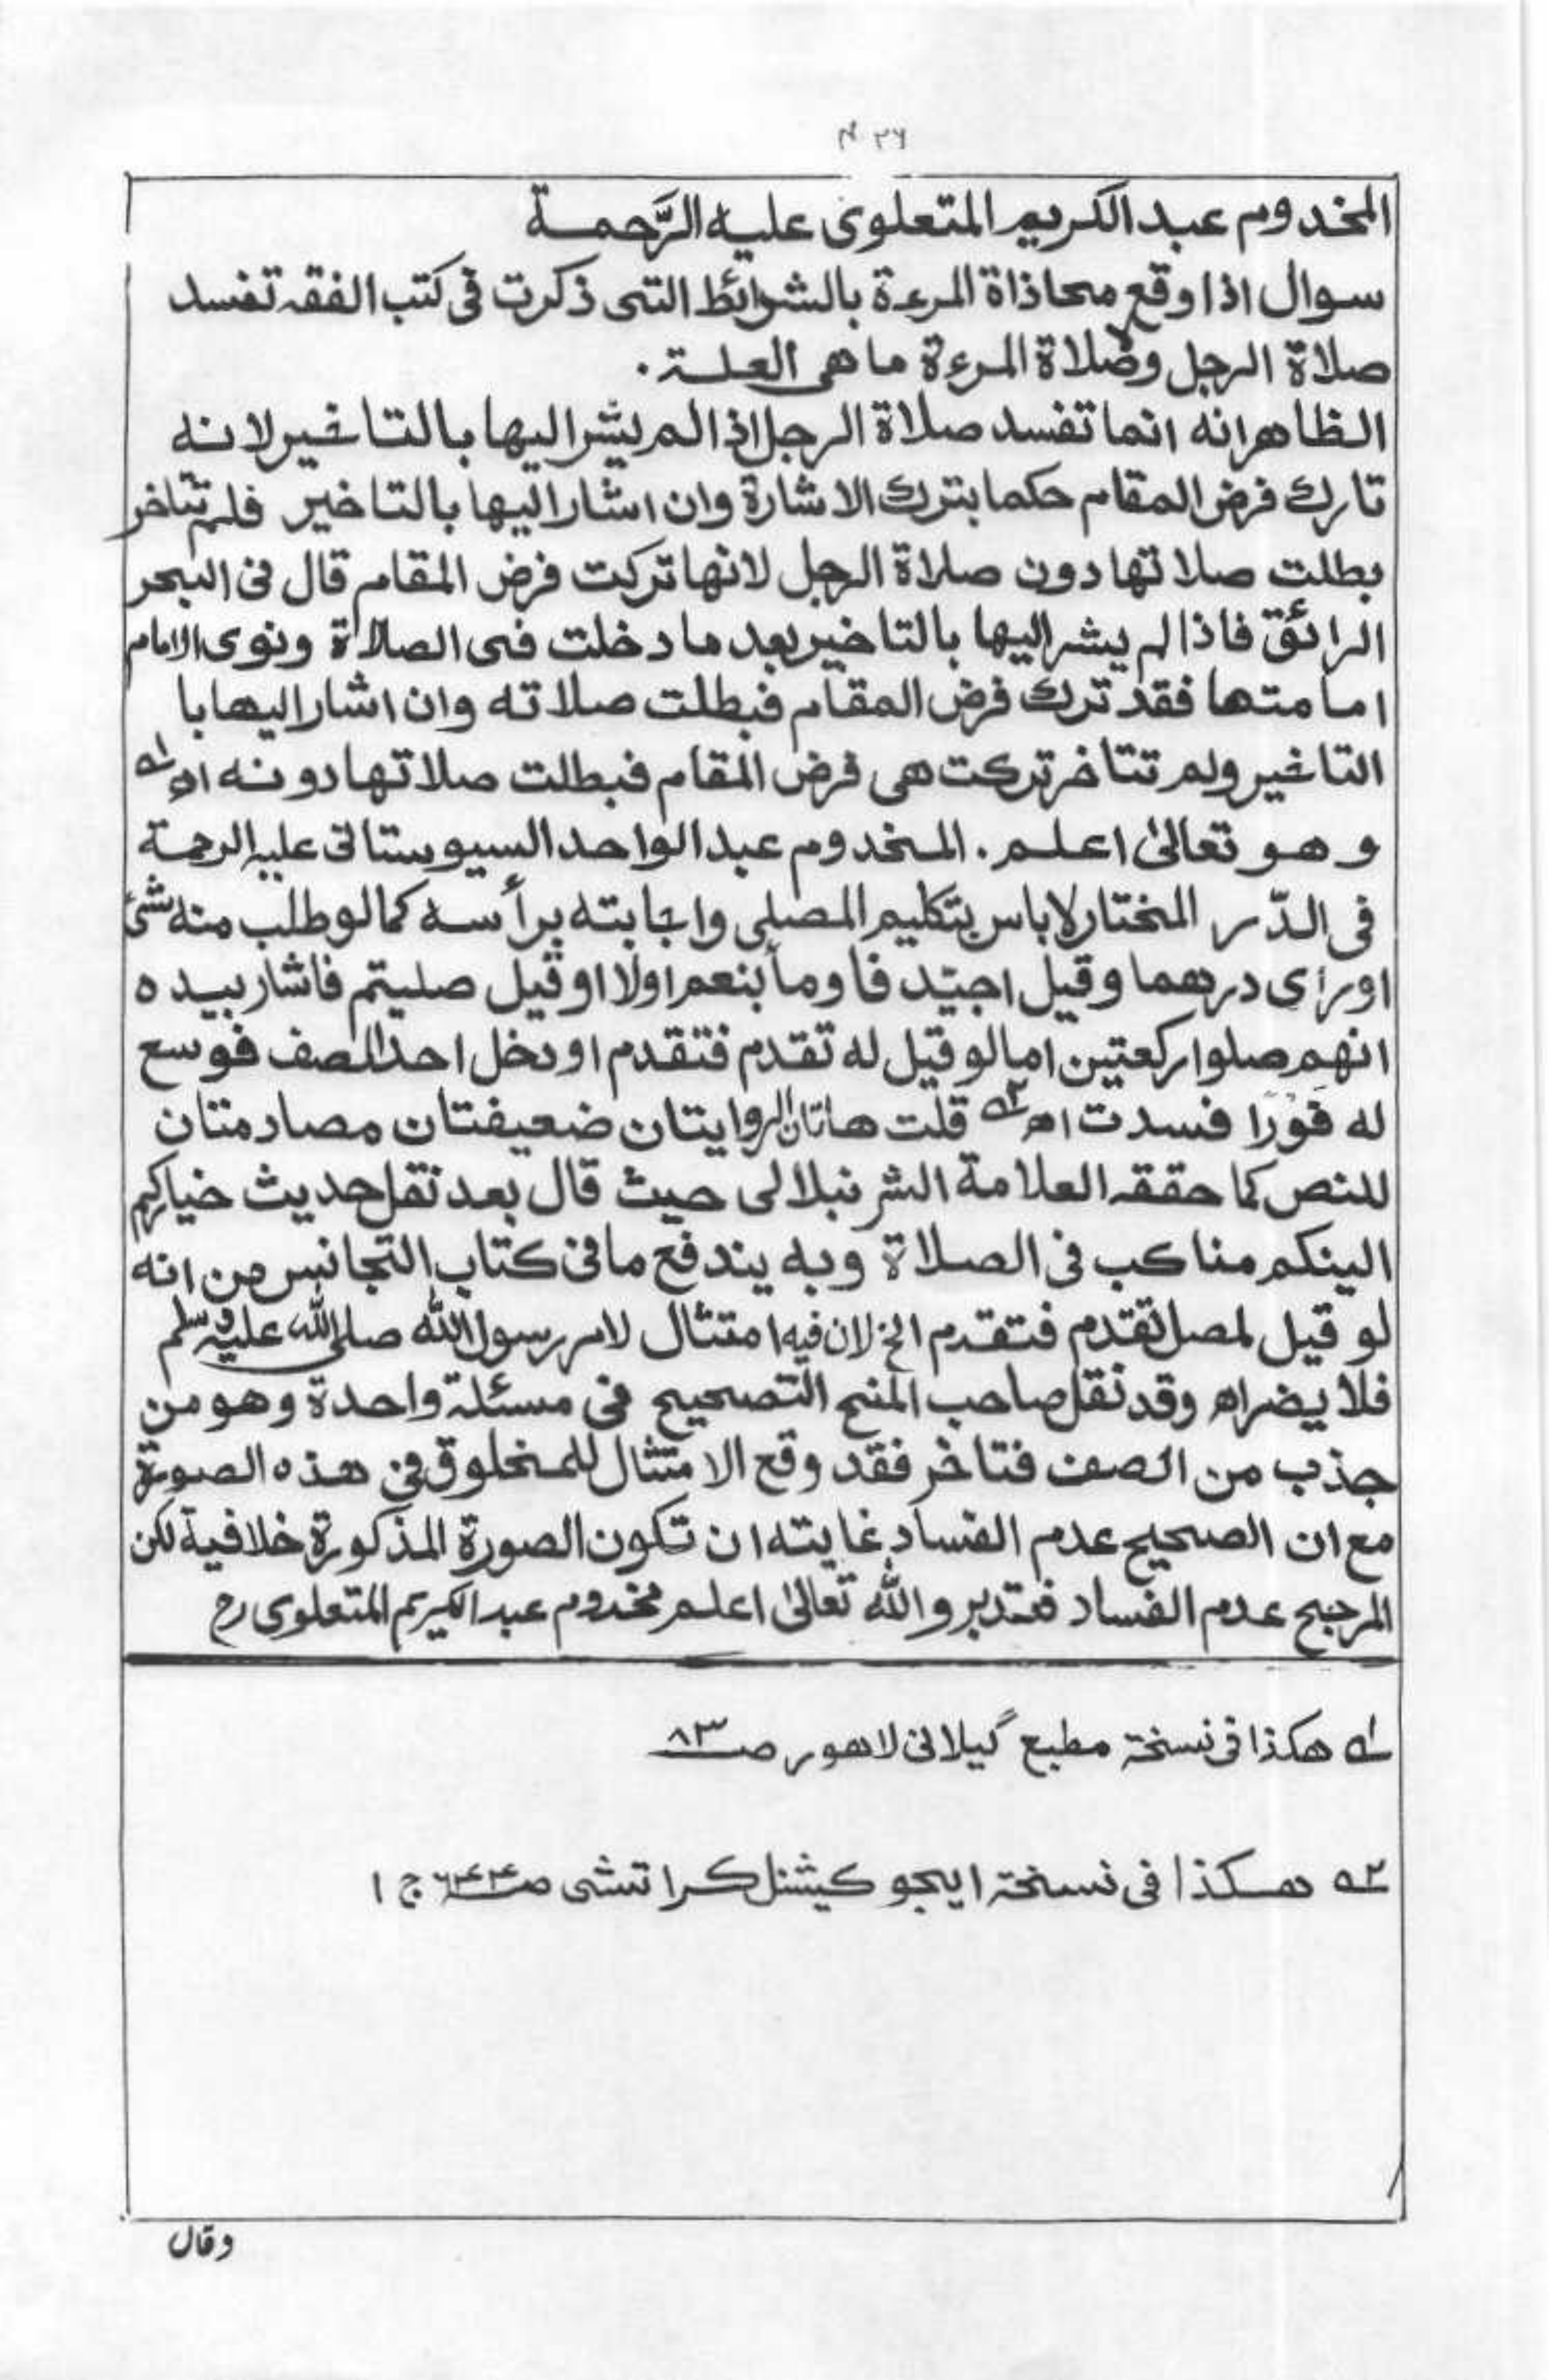 المخدوم عبد الكريم المتعلوى عليه الرَّحمة
سوال اذا وقع محاذاة المرءة بالشرائط التى ذكرت فى كتب الفقه تفسد
صلاة الرجل وصلاة المرءة ما هى العلة .
الظاهر انه انما تفسد صلاة الرجل اذا لم يشر اليها بالتاخير لانه
تارك فرض المقام حكما بترك الاشارة وان اشار اليها بالتاخير فلم تتاخر
بطلت صلاتها دون صلاة الرجل لانها تركت فرض المقام قال فى البحر
الرائق فاذا لم يشر اليها بالتاخير بعد ما دخلت فى الصلاة ونوى الامام
امامتها فقد ترك فرض المقام فبطلت صلاته وان اشار اليها با
التاخير ولم تتاخر تركت هى فرض المقام فبطلت صلاتها دونه اھ ؁۱
وهو تعالىٰ اعلم . المخدوم عبد الواحد السيوستانى عليه الرحمة
فى الدّر المختار لاباس بتكليم المصلى واجابته برأسه كما لو طلب منه شئ
او رأى درهما وقيل اجيّد فاومأ بنعم اولا او قيل صليتم فاشار بيده
انهم صلوا ركعتين اما لو قيل له تقدم فتقدم او دخل احد الصف فوسع
له فورًا فسدت اھ ؁۲ قلت هاتان الروايتان ضعيفتان مصادمتان
للنص كما حققه العلامة الشرنبلالى حيث قال بعد نقل حديث خياركم
الينكم مناكب فى الصلاة وبه يندفع ما فى كتاب التجانس من انه
لو قيل لمصل تقدم فتقدم الخ لان فيه امتثال لامر رسول الله صلى الله عليه وسلم
فلا يضر اھ وقد نقل صاحب المنح التصحيح فى مسئلة واحدة وهو من
جذب من الصف فتاخر فقد وقع الامتثال للمخلوق فى هذه الصورة
مع ان الصحيح عدم الفساد غايته ان تكون الصورة المذكورة خلافية لكن
المرجح عدم الفساد فتدبر والله تعالىٰ اعلم مخدوم عبد الكريم المتعلوى رح
؁۱ هكذا فى نسخة مطبع گيلانى لاهور صـ ۸۳
؁۲ هكذا فى نسخة ايجوكيشنل كراتشى صـ ج ۱
وقال